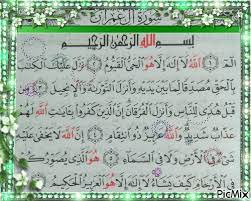 سورة آل عمران
بسم الله الرحمن الرحيم
الم ﴿١﴾ الله لا إله إلا هو الحي القيوم ﴿٢﴾ نزل عليك الكتاب
بالحق مصدقا لما بين يديه وأنزل التوراة والإنجيل ﴿٣﴾ من قبل
هدى للناس وأنزل الفرقان إن الذين كفروا بآيات الله لهم
عذاب شديد والله عزيز ذو انتقام ﴿٤﴾ إن الله لا يخفى عليه
شيء في الأرض ولا في السماء ﴿٥﴾ هو الذي يصوركم
في الأرحام كيف يشاء لا إله إلا هو العزيز الحكيم
PicMix